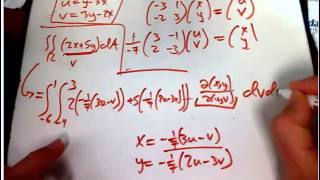 u = y-3x
v = 3y-2x
(-3 1) (x) = (u)
(-2 3) (y) (v)
∬ (2x+5y)dA
R v
1/-7 (3 -1) (u) = (x)
(2 -3) (v) (y)
= ∫ -6 1 ∫ -4 3 2(-1/7(3u-v)) + 5(-1/7(2u-3v)) · ∂(x,y)/∂(u,v) dvdu
x = -1/7(3u-v)
y = -1/7(2u-3v)